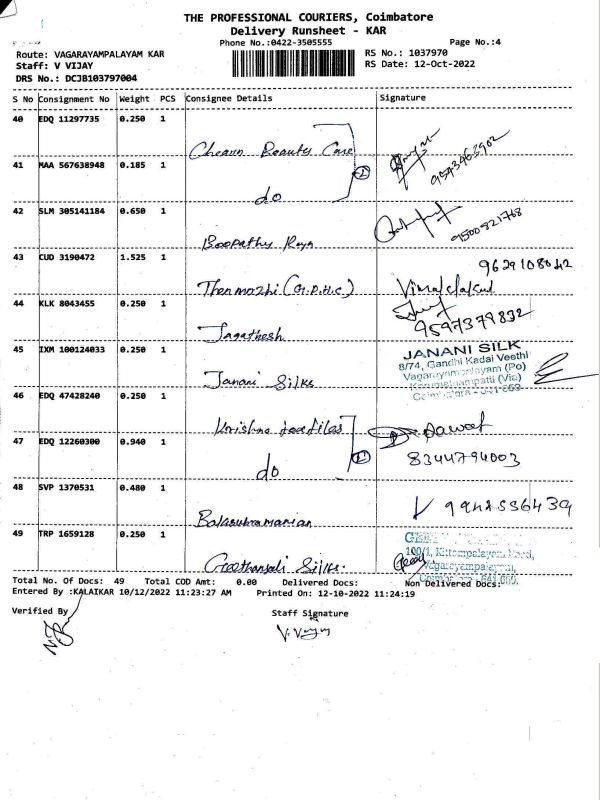 THE PROFESSIONAL COURIERS, Coimbatore
Delivery Runsheet - KAR
Phone No.:0422-3505555 Page No.:4
Route: VAGARAYAMPALAYAM KAR RS No.: 1037970
Staff: V VIJAY RS Date: 12-Oct-2022
DRS No.: DCJB103797004
S No Consignment No Weight PCS Consignee Details Signature
40 EDQ 11297735 0.250 1
Beauty Care 9543963902
41 MAA 567638948 0.185 1
do
42 SLM 305141184 0.650 1
Boopathy Raya 9500821768
43 CUD 3190472 1.525 1
9629108042
Thenmozhi (G.P.H.S)
44 KLK 8043455 0.250 1
Jagathesh 9597379832
45 IXM 100124033 0.250 1
JANANI SILK
8/74, Gandhi Kadai Veethi
Janani Silks Vagarayampalayam (Po)
(Via)
46 EDQ 47428240 0.250 1
Krishna textiles
47 EDQ 12260300 0.940 1
do 8344794003
48 SVP 1370531 0.480 1
Balasubramanian
49 TRP 1659128 0.250 1
100/1, Kittampalayam Road,
Vagarayampalayam,
Geethanjali Silks.
Total No. Of Docs: 49 Total COD Amt: 0.00 Delivered Docs: Non Delivered Docs:
Entered By :KALAIKAR 10/12/2022 11:23:27 AM Printed On: 12-10-2022 11:24:19
Verified By Staff Signature
V. Vijay